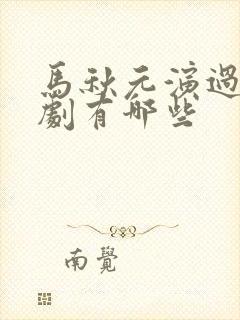 馬秋元演過
劇有哪些
南覺